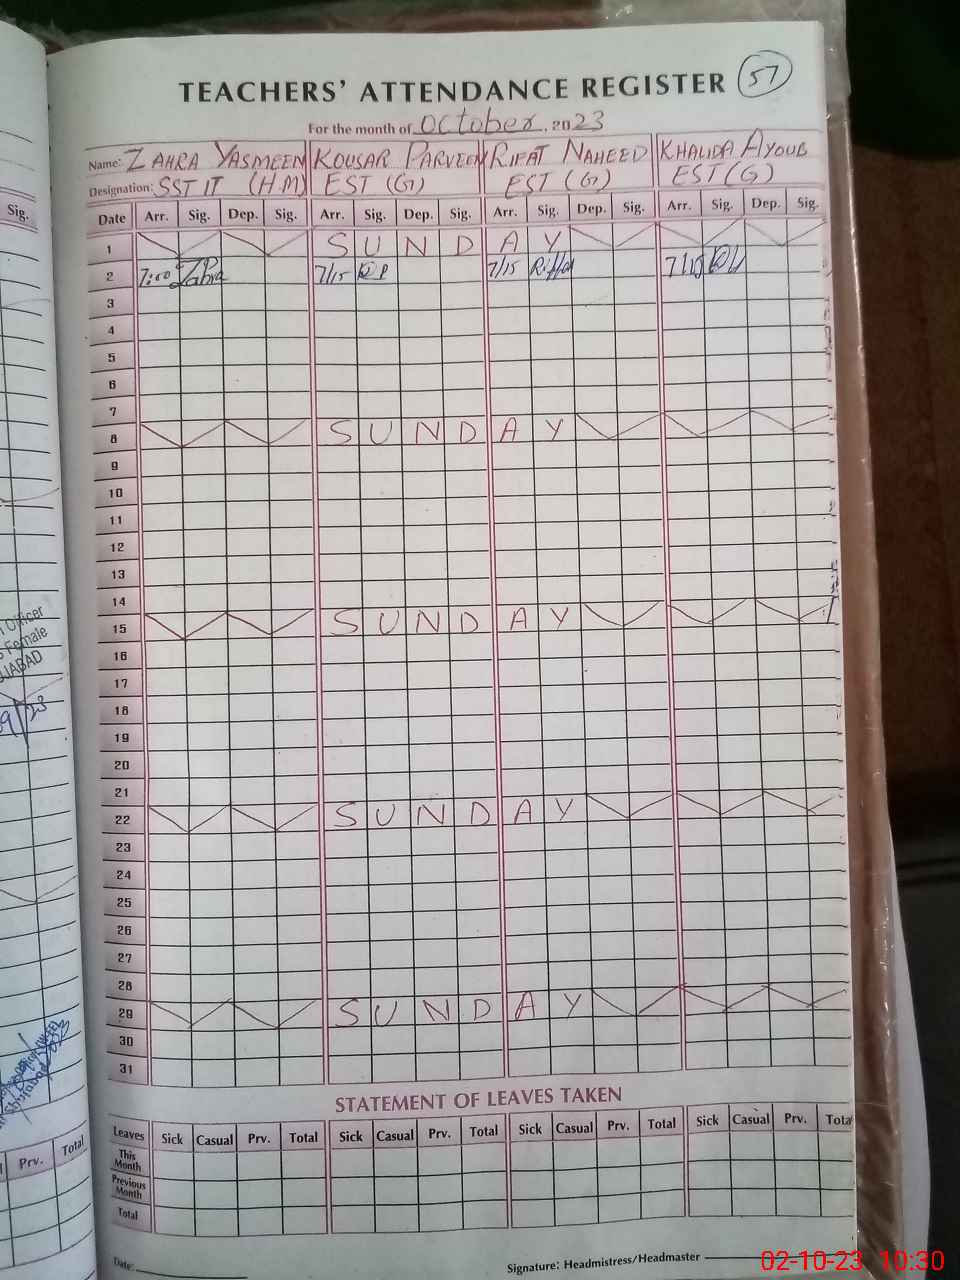 TEACHERS' ATTENDANCE REGISTER 57
For the month of October, 2023
Name: ZAHRA YASMEEN KOUSAR PARVEEN RIFAT NAHEED KHALIDA AYOUB
Designation: SST IT (HM) EST (G) EST (G) EST (G)
Sig.
Date Arr. Sig. Dep. Sig. Arr. Sig. Dep. Sig. Arr. Sig. Dep. Sig. Arr. Sig. Dep. Sig.
1 SUNDAY
2 7:00 Zahra 7/15 7/15 Riffat 7/15
3
4
5
6
7
8 SUNDAY
9
10
11
12
13
14
15 SUNDAY
16
17
18
19
20
21
22 SUNDAY
23
24
25
26
27
28
29 SUNDAY
30
31
Officer
Female
JJABAD
STATEMENT OF LEAVES TAKEN
Leaves Sick Casual Prv. Total Sick Casual Prv. Total Sick Casual Prv. Total Sick Casual Prv. Total
This Month
Previous Month
Total
Prv. Total
Date:
Signature: Headmistress/Headmaster
02-10-23 10:30